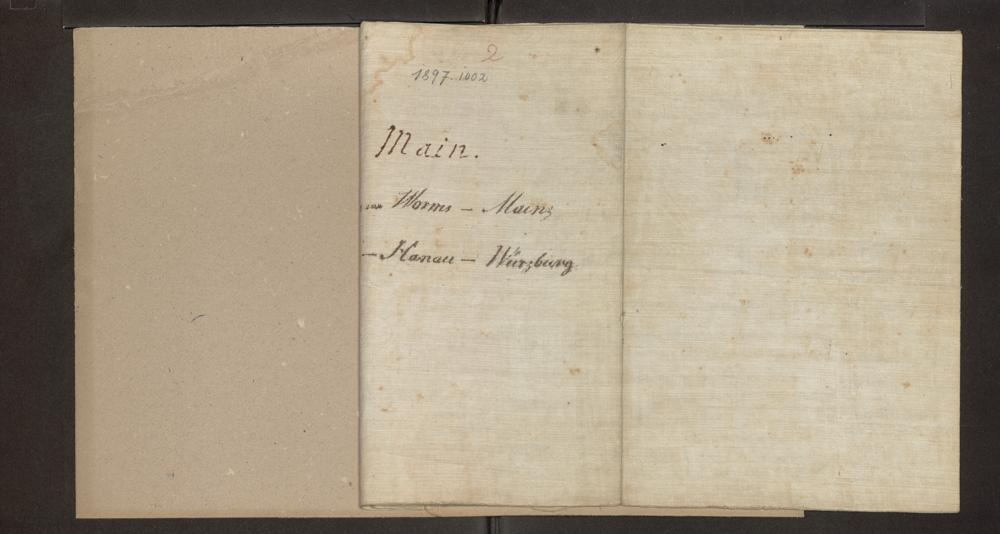 2
1897.1002
Main.
Worms – Mainz
– Hanau – Würzburg